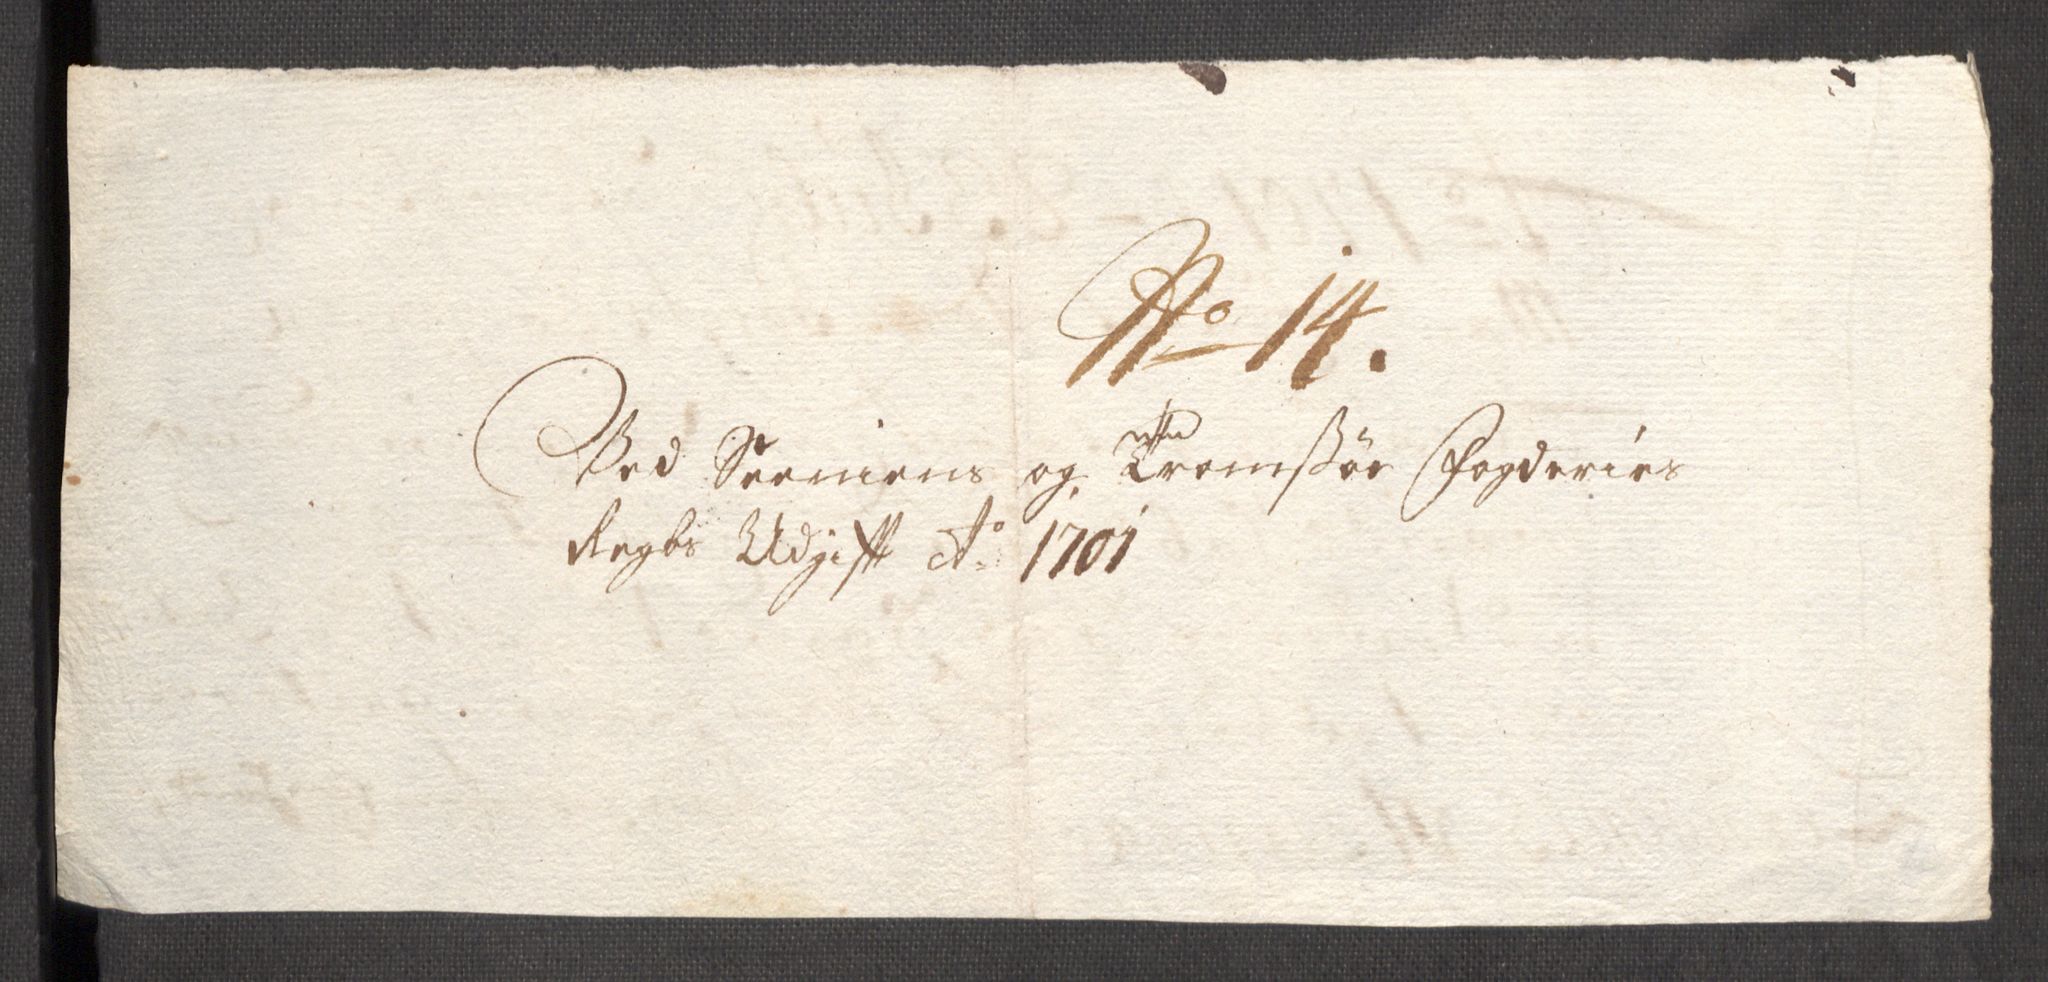 No 14.
Ved Senniens og Tromsøe Fogderies
Regbs Udgifft Ao. 1701